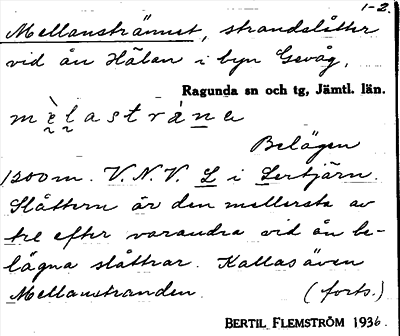 1-2.
Mellansträmmet, strandslåtter
vid ån Hälan i byn Gevåg,
Ragunda sn och tg, Jämtl. län.
Belägen
1200 m. V.N.V. L i Lertjärn.
Slåttern är den mellersta av
tre efter varandra vid ån be-
lägna slåttrar. Kallas även
Mellanstranden. (forts.)
BERTIL FLEMSTRÖM 1936.